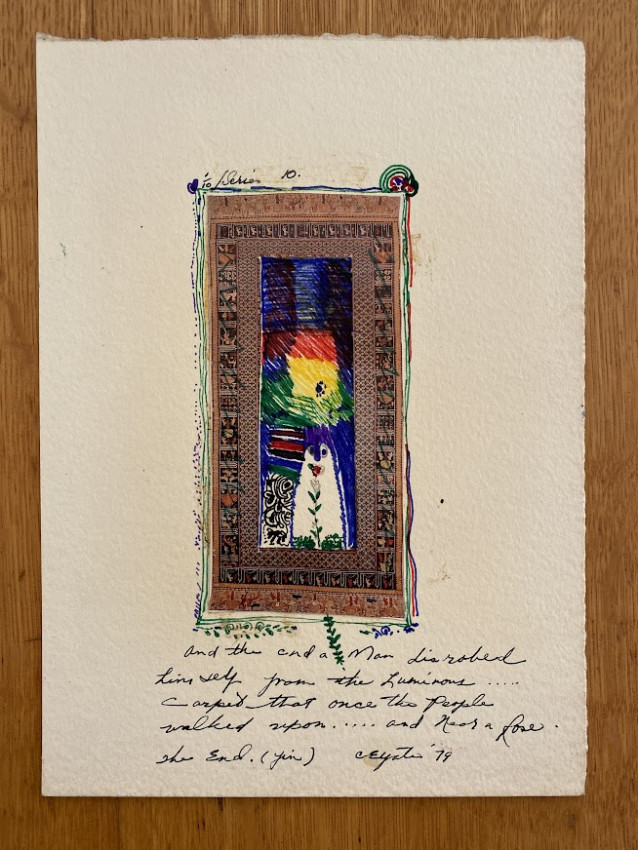 10 Series 10.
and the end a Man disrobed
himself from the Luminous .....
Carpet that once the People
walked upon ..... and Near a Rose.
The End. (Yin) '79